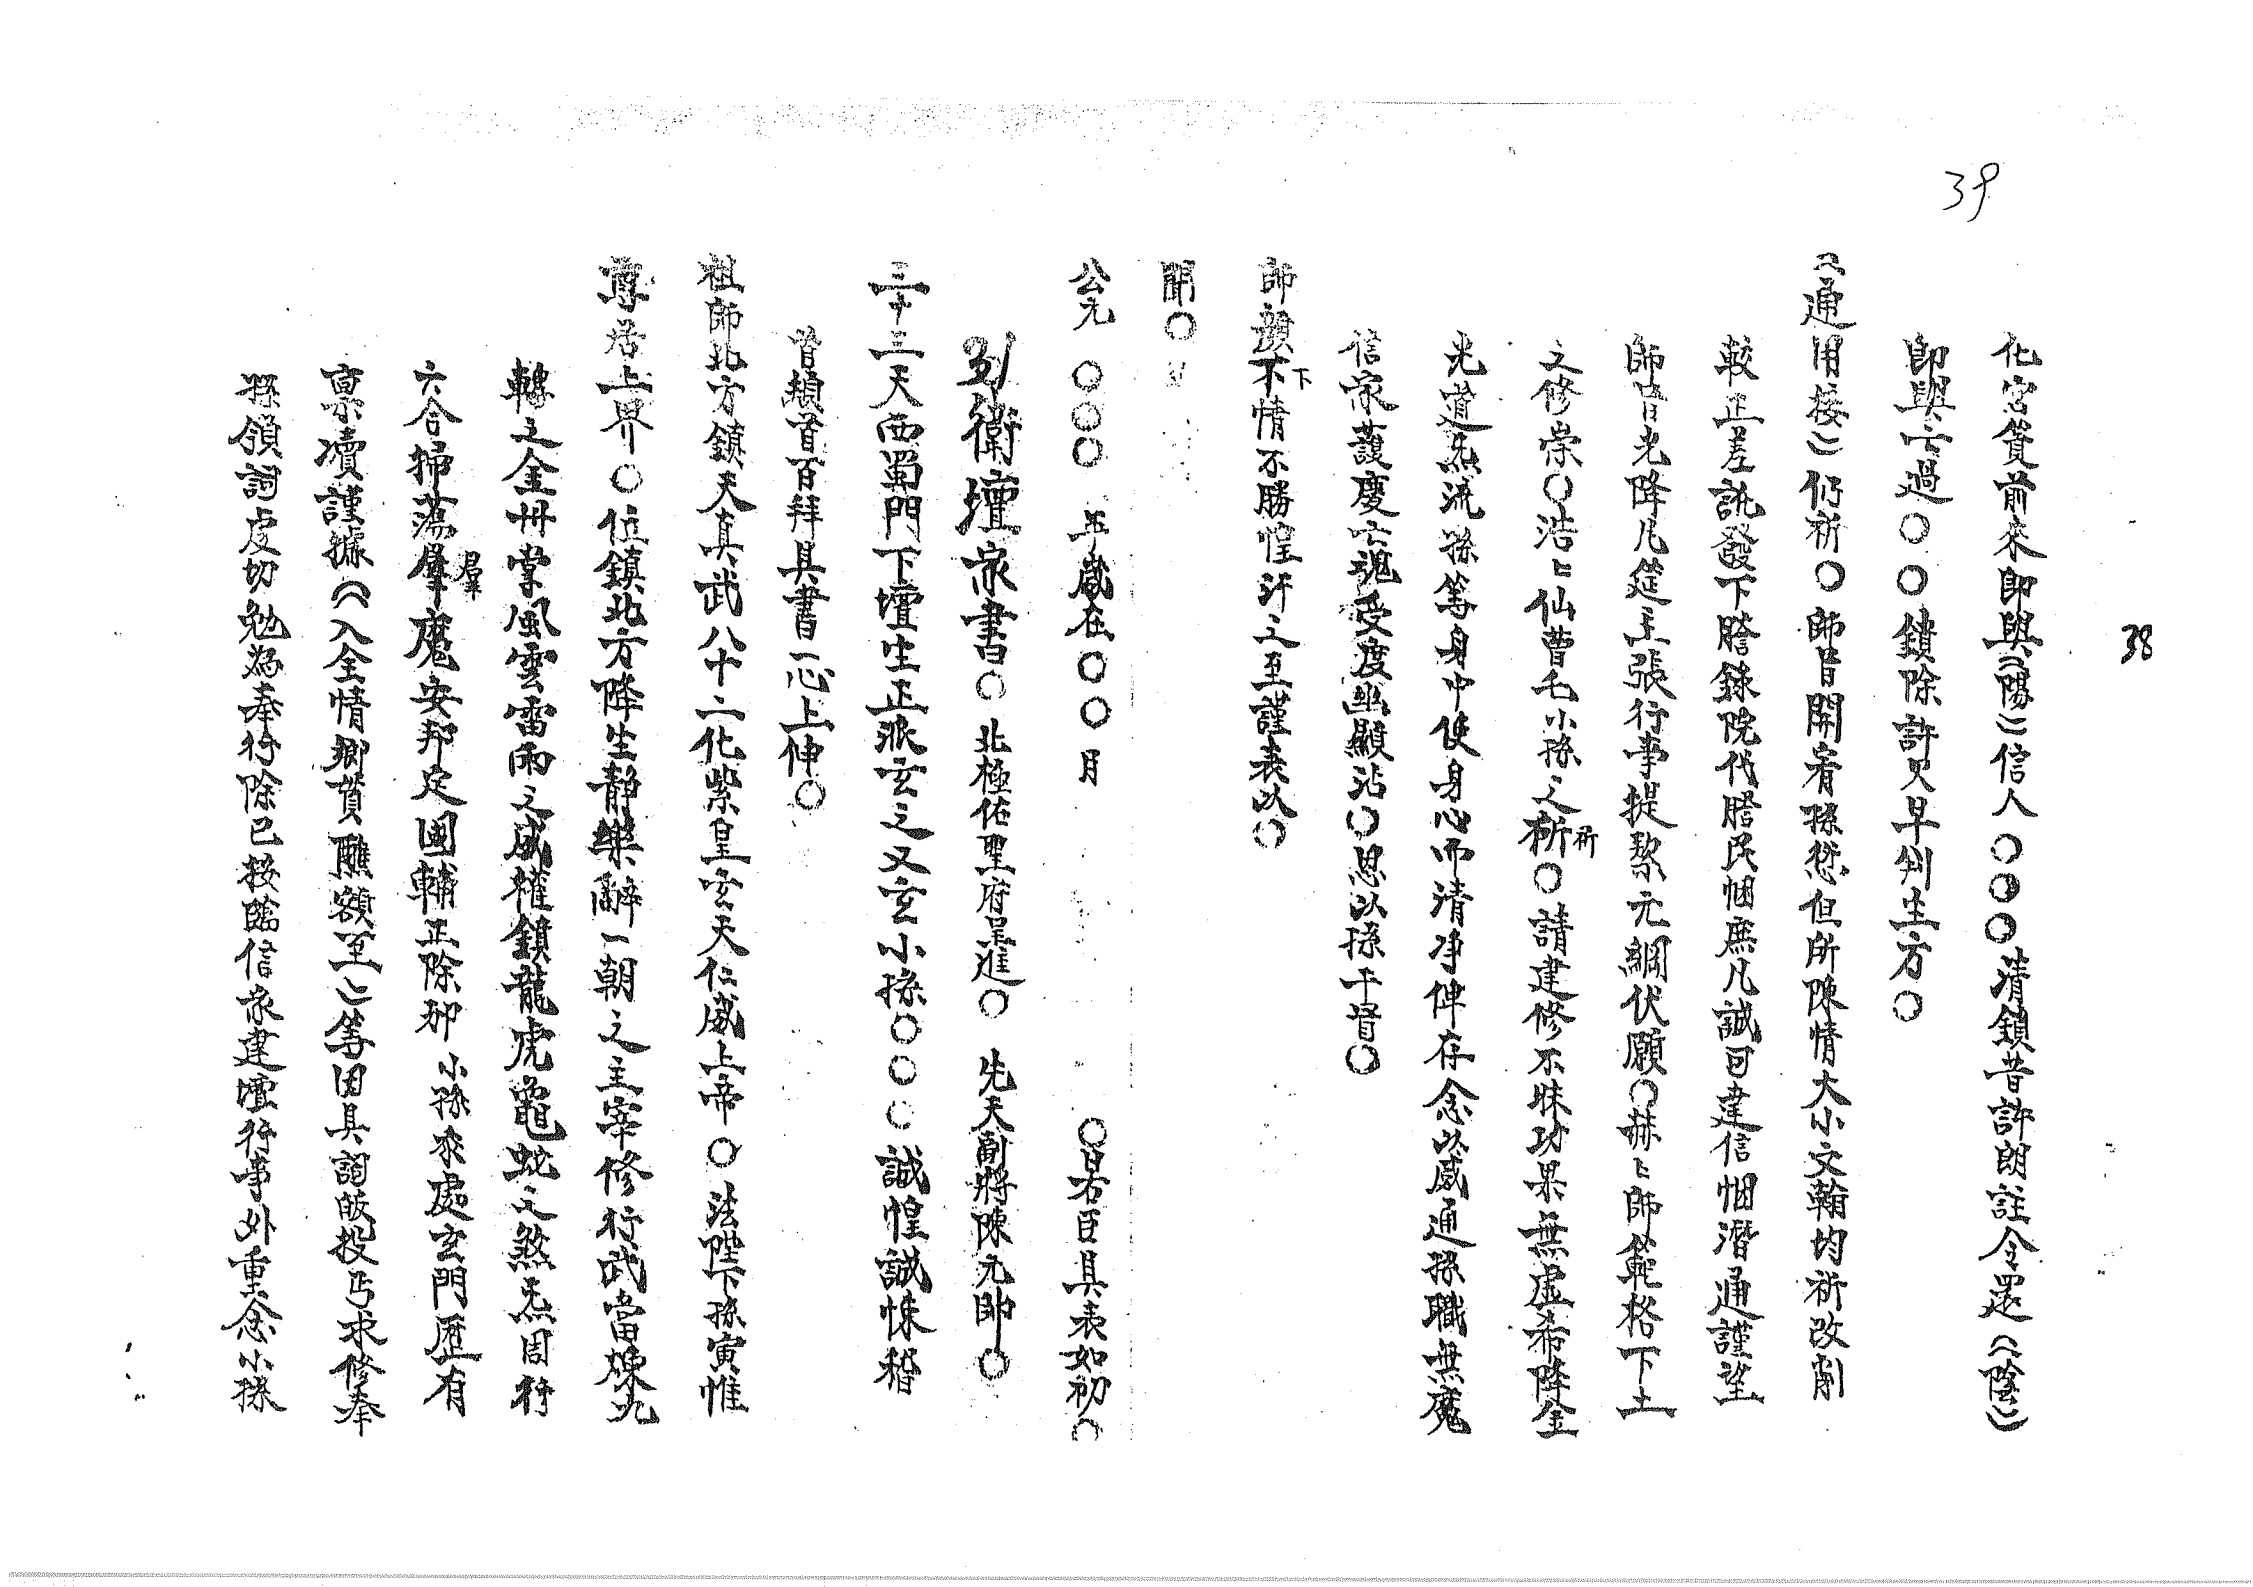 39
38
化宮資前來即與(陽)信人○○○清鎖昔許朗註令還(陰)
即與亡過○○鎖除許欠早判生方○
(通用接)仍祈○師旨開宥孫愆但所陳情大小文翰均祈改削
較正差訛發下謄錄院代謄民悃庶凡誠可達信悃潛通謹望
師旨光降凡筵主張行事提挈元綱伏願○赫〻師範格下土
文修崇○浩〻仙曹乇小孫之祈○請建修不昧功果無虛希降金
祈
光道炁流孫等身中使身心而清淨俾存念以感通孫職無魔
信家護慶亡魂受度幽顯沾○恩以孫干冒○
師顏不情不勝惶汗之至謹表以○
下
聞○
公元 ○○○ 年歲在○○月 ○日若臣具表如初○
列衛壇家書○北極佑聖府呈進○ 先天副將陳元帥○
三十三天西蜀門下壇生正派玄之又玄小孫○○○誠惶誠悚稽
首頓首百拜具書一心上伸○
祖師北方鎮天真武八十二化紫皇玄天仁威上帝○法陛下孫寅惟
尊居上界○位鎮北方降生靜樂辭一朝之主宰修行武當煉九
轉之金丹掌風雲雷雨之威權鎖龍虎龜蛇之煞炁周行
六合掃蕩羣魔安邦定國輔正除邪 小孫忝處玄門歷有
群
稟瀆謹據(入全情鄉貫醮額至)等因具詞皈投丐求修奉
孫領詞虔切勉為奉行除已按臨信家建壇行事外重念小孫